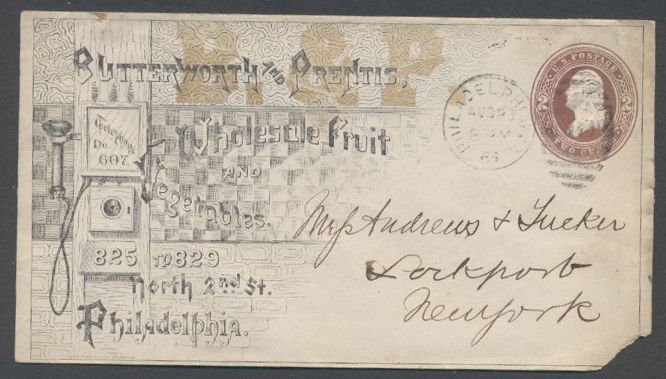 B & P
BUTTERWORTH AND PRENTIS,
Wholesale Fruit
AND
Vegetables.
Telephone
No.
607.
825 TO 829
North 2nd St.
Philadelphia.
PHILADELPHIA
AUG
6 PM
U.S. POSTAGE
2 2
TWO CENTS
Messrs Andrews & Tucker
Lockport
New york